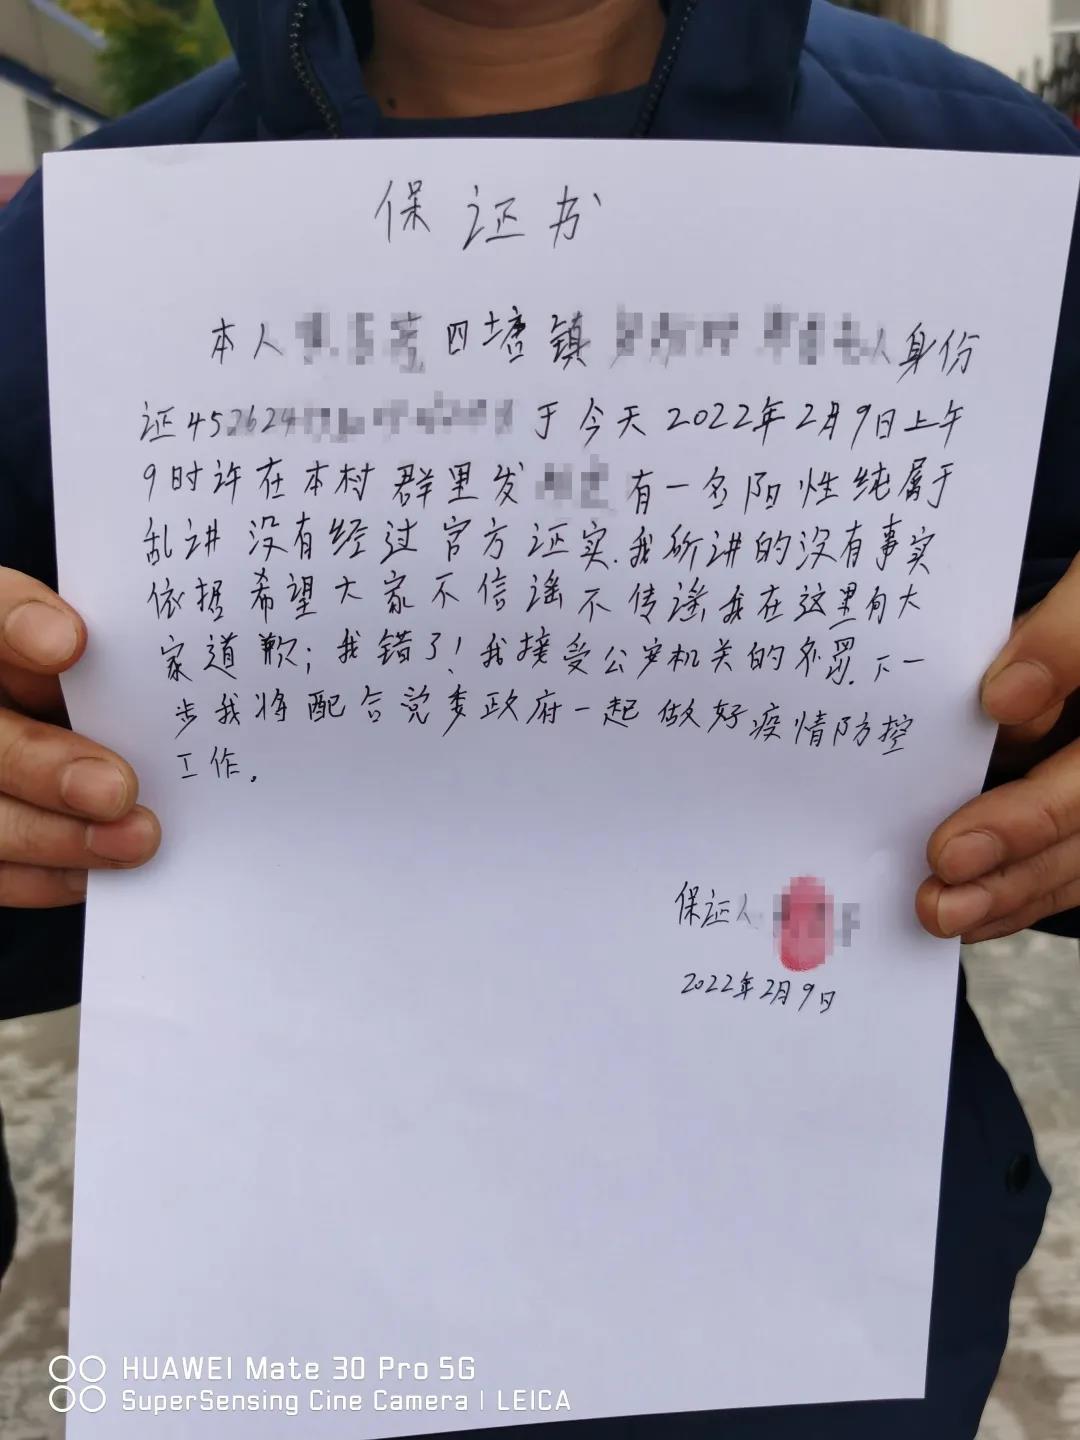 保证书
本人 四塘镇 人身份
证452624 于今天2022年2月9日上午
9时许在本村群里发 有一名阳性纯属于
乱讲没有经过官方证实.我所讲的没有事实
依据希望大家不信谣不传谣我在这里向大
家道歉;我错了!我接受公安机关的处罚.下一
步我将配合党委政府一起做好疫情防控
工作.
保证人
2022年2月9日
HUAWEI Mate 30 Pro 5G
SuperSensing Cine Camera | LEICA